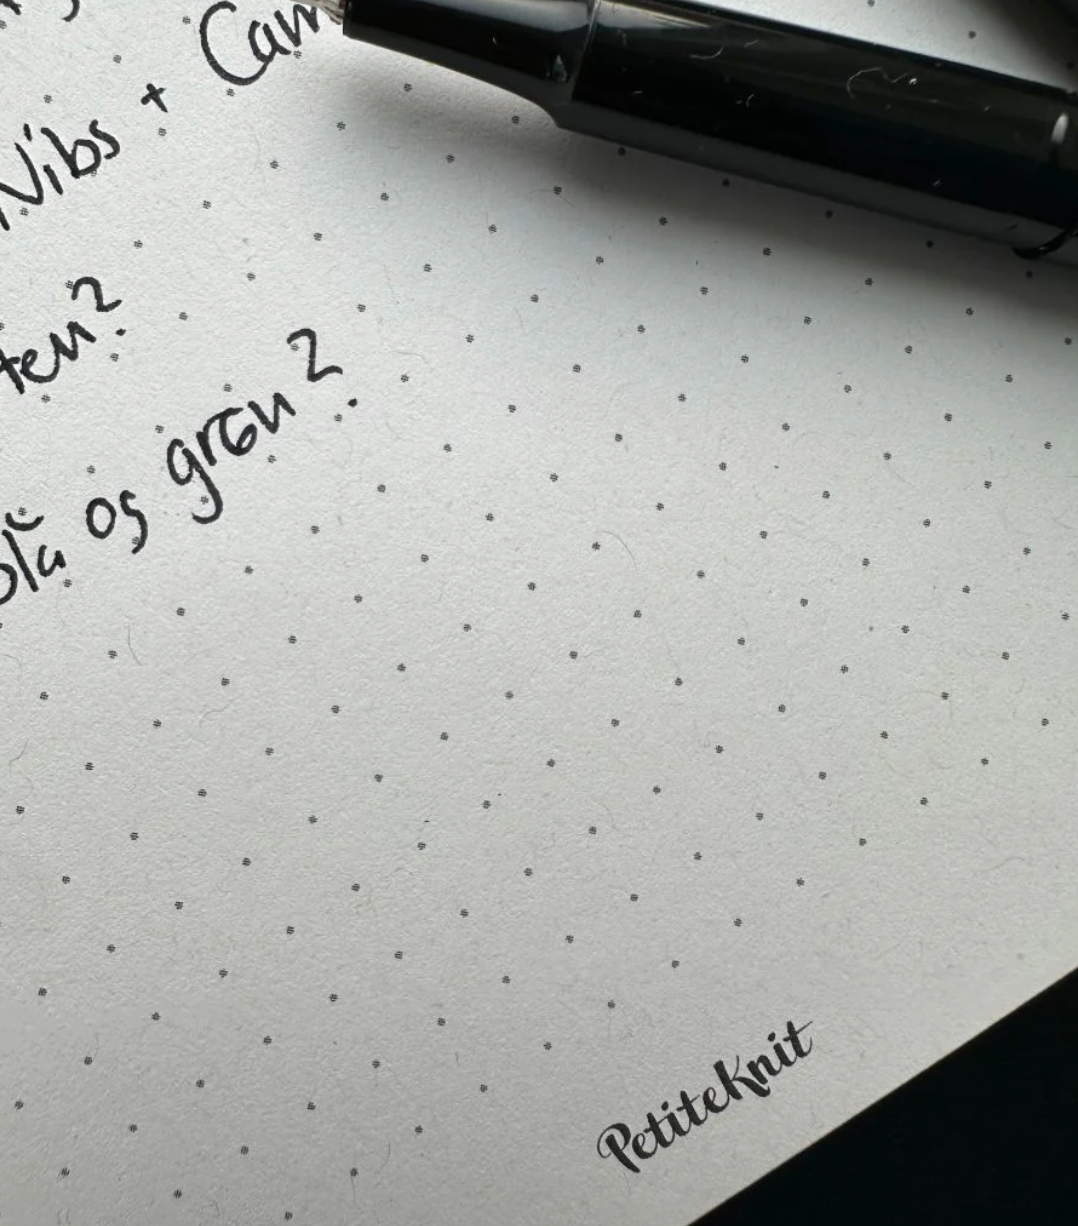 Vibs + Cam
ten?
blå og grøn?
PetiteKnit